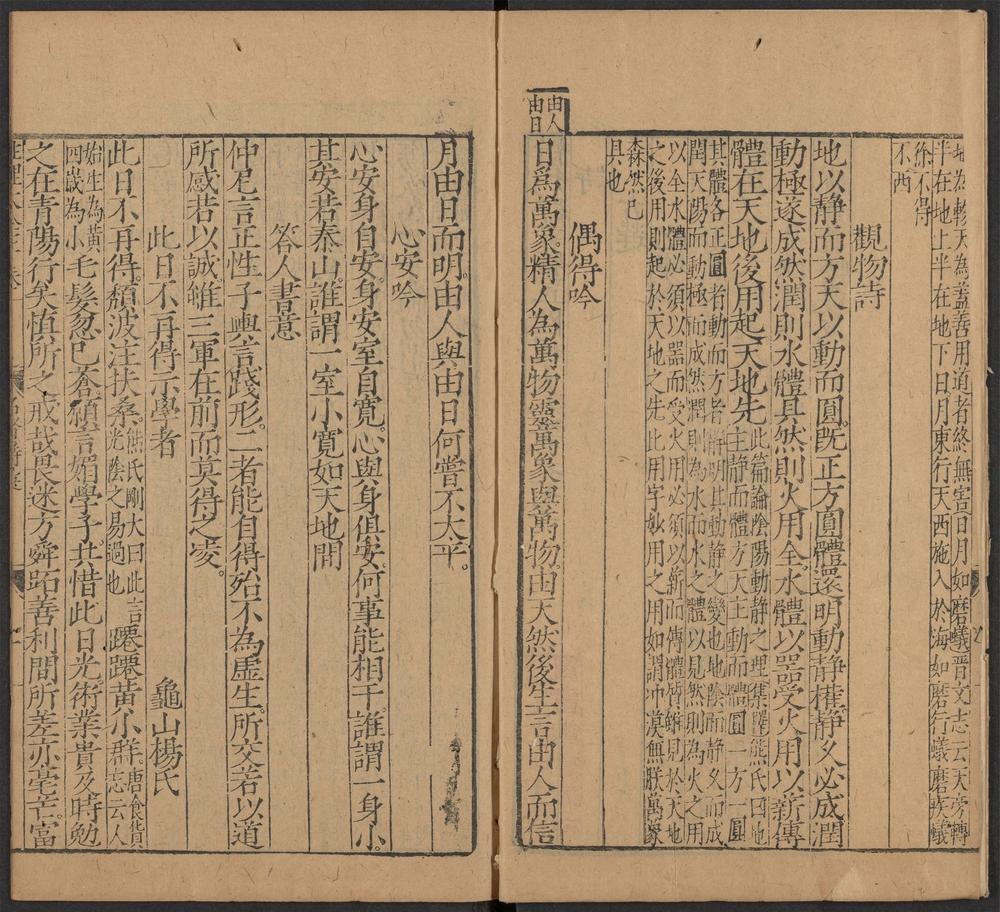 地為軫天為蓋善用道者終無害日月如磨蟻晋文志云天旁轉
半在地上半在地下日月東行天西施入於海如磨行蟻磨疾蟻
徐不得
不西
觀物詩
地以静而方天以動而圓既正方圓體還明動静權静久必成潤
動極遂成然潤則水體具然則火用全水體以噐受火用以薪傳
體在天地後用起天地先此篇論陰陽動静之理集覽熊氏曰地
主静而體方天主動而體圓一方一圓
其體各正圓者動而方者静明其動静之變也地陰而静久而成
潤天陽而動極而成然潤則為水而水之體以見然則為火之用
以全水體必須以噐而受火用必須以薪而傳體質雖見於天地
之後用則起於天地之先此用字妙用之用如謂冲漠無朕萬象
森然已
具也
偶得吟
由人
由日
日為萬象精人為萬物靈萬象與萬物由天然後生言由人而信
月由日而明由人與由日何嘗不太平
心安吟
心安身自安身安室自寛心與身俱安何事能相干誰謂一身小
其安若泰山誰謂一室小寛如天地間
答人書意
仲尼言正性子輿言踐形二者能自得殆不為虚生所交若以道
所感若以誠雖三軍在前而莫得之凌
此日不再得示學者
龜山楊氏
此日不再得頽波注扶桑熊氏剛大曰此言
光陰之易過也
躚躚黄小群唐食貨
志云人
始生為黄
四歲為小
毛髮忽已蒼頥言媚學子共惜此日光術業貴及時勉
之在青陽行矣慎所之戒哉畏迷方舜跖善利間所差亦毫芒富